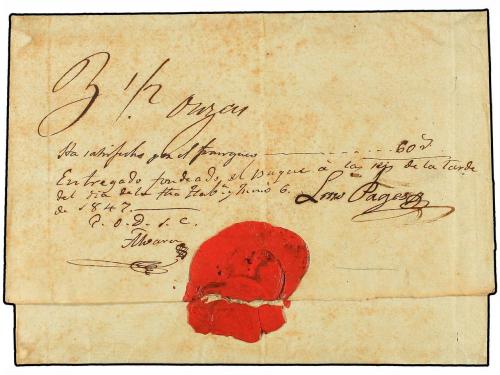 3 1/2 onzas
Ha satisfecho por el franqueo 60 d.
Entregado fondeado el Buque à las seis de la tarde
del dia de la fha Habª y Junio 6
de 1847.
P. O. D. S. C.
Alvarez
Lono Pages